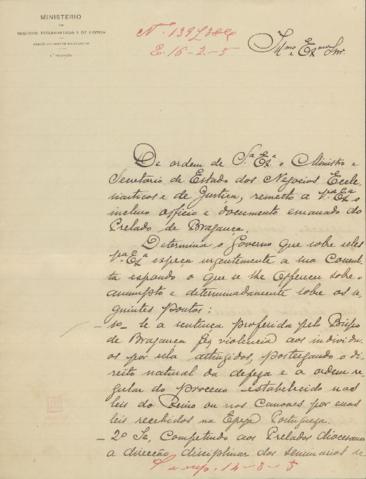 MINISTERIO
DOS
NEGOCIOS ECCLESIASTICOS E DE JUSTIÇA
Illmo e Exmo Snr.
E. 16-2-5
De ordem de S.ª Ex.ª o Ministro e
Secretario de Estado dos Negocios Eccle-
siasticos e de Justiça, remetto a V.ª Ex.ª o
incluso officio e documento emanado do
Prelado de Bragança.
Determina o Governo que sobre elles
V.ª Ex.ª expeça urgentemente a sua Consul-
ta expondo o que se lhe offerecer sobre o
assumpto e determinadamente sobre os se-
guintes pontos:
1º Se a sentença proferida pelo Bispo
de Bragança fez violencia aos individu-
os por ella attingidos, postergando o di-
reito natural da defeza e a ordem re-
gular do processo estabelecido nas
leis do Reino ou nos Canones por essas
leis recebidos na Egreja Portugueza.
2º Se, competindo aos Prelados diocesanos
a direcção disciplinar dos seminarios se